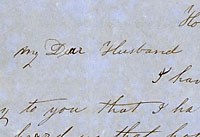 Ho
My Dear Husband
I hav
y to you that I ha